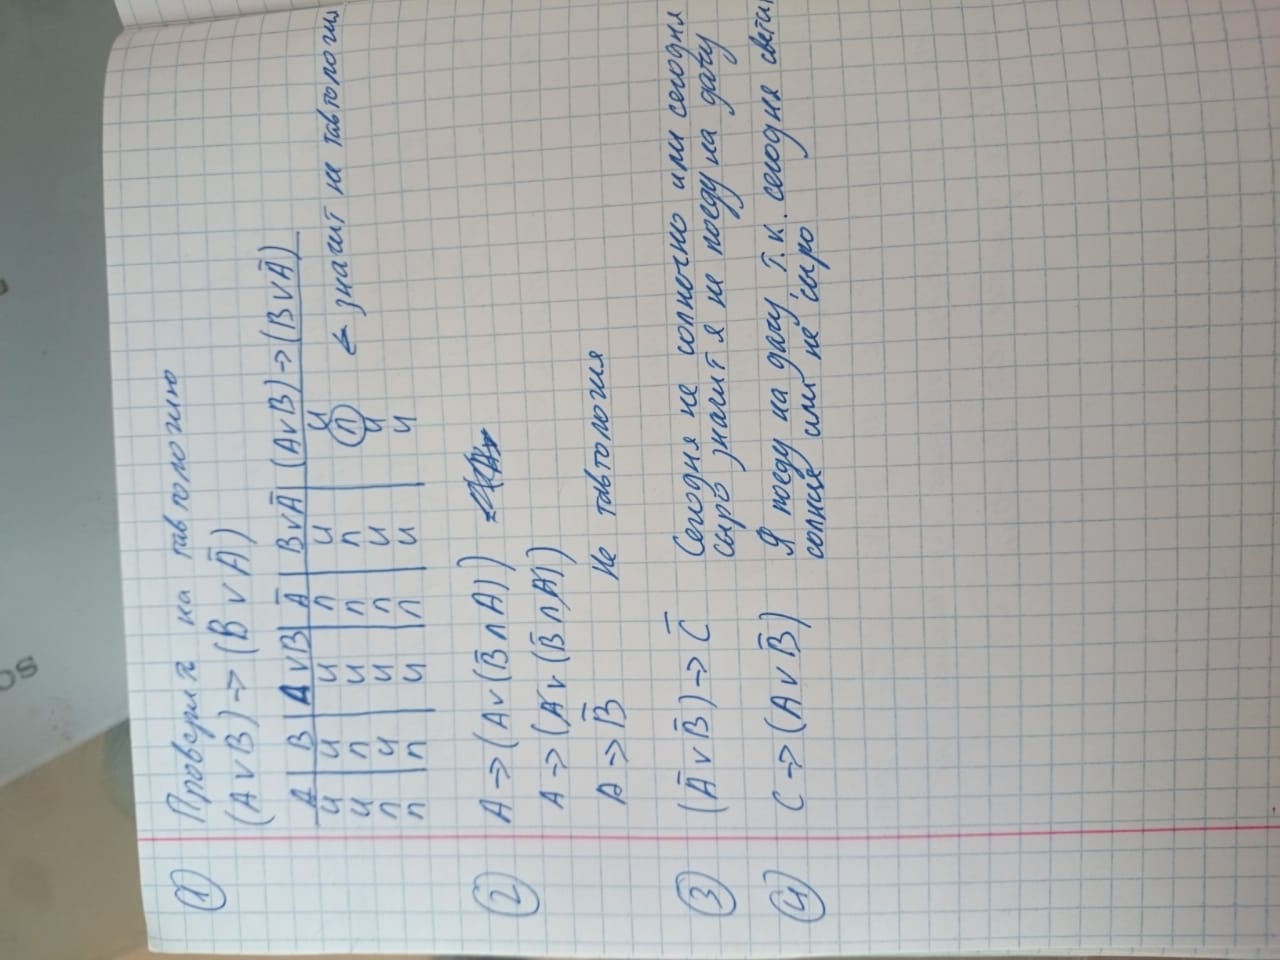 SC
① Проверка на тавтологию
(A ∨ B) → (B ∨ A̅)
A | B | A ∨ B | A̅ | B ∨ A̅ | (A ∨ B) → (B ∨ A̅)
и | и | и | л | и | и
и | л | и | л | л | л ← значит не тавтология
л | и | и | л | и | и
л | л | и | л | и | и
② A → (A ∨ (B̅ ∩ A))
A → (A ∨ (B̅ ∩ A))
A → B̅ Не тавтология
③ (A̅ ∨ B̅) → C̅ Сегодня не солнечно или сегодня
сыро значит я не поеду на дачу
④ C → (A ∨ B̅) Я поеду на дачу, т.к. сегодня
солнце или не сыро